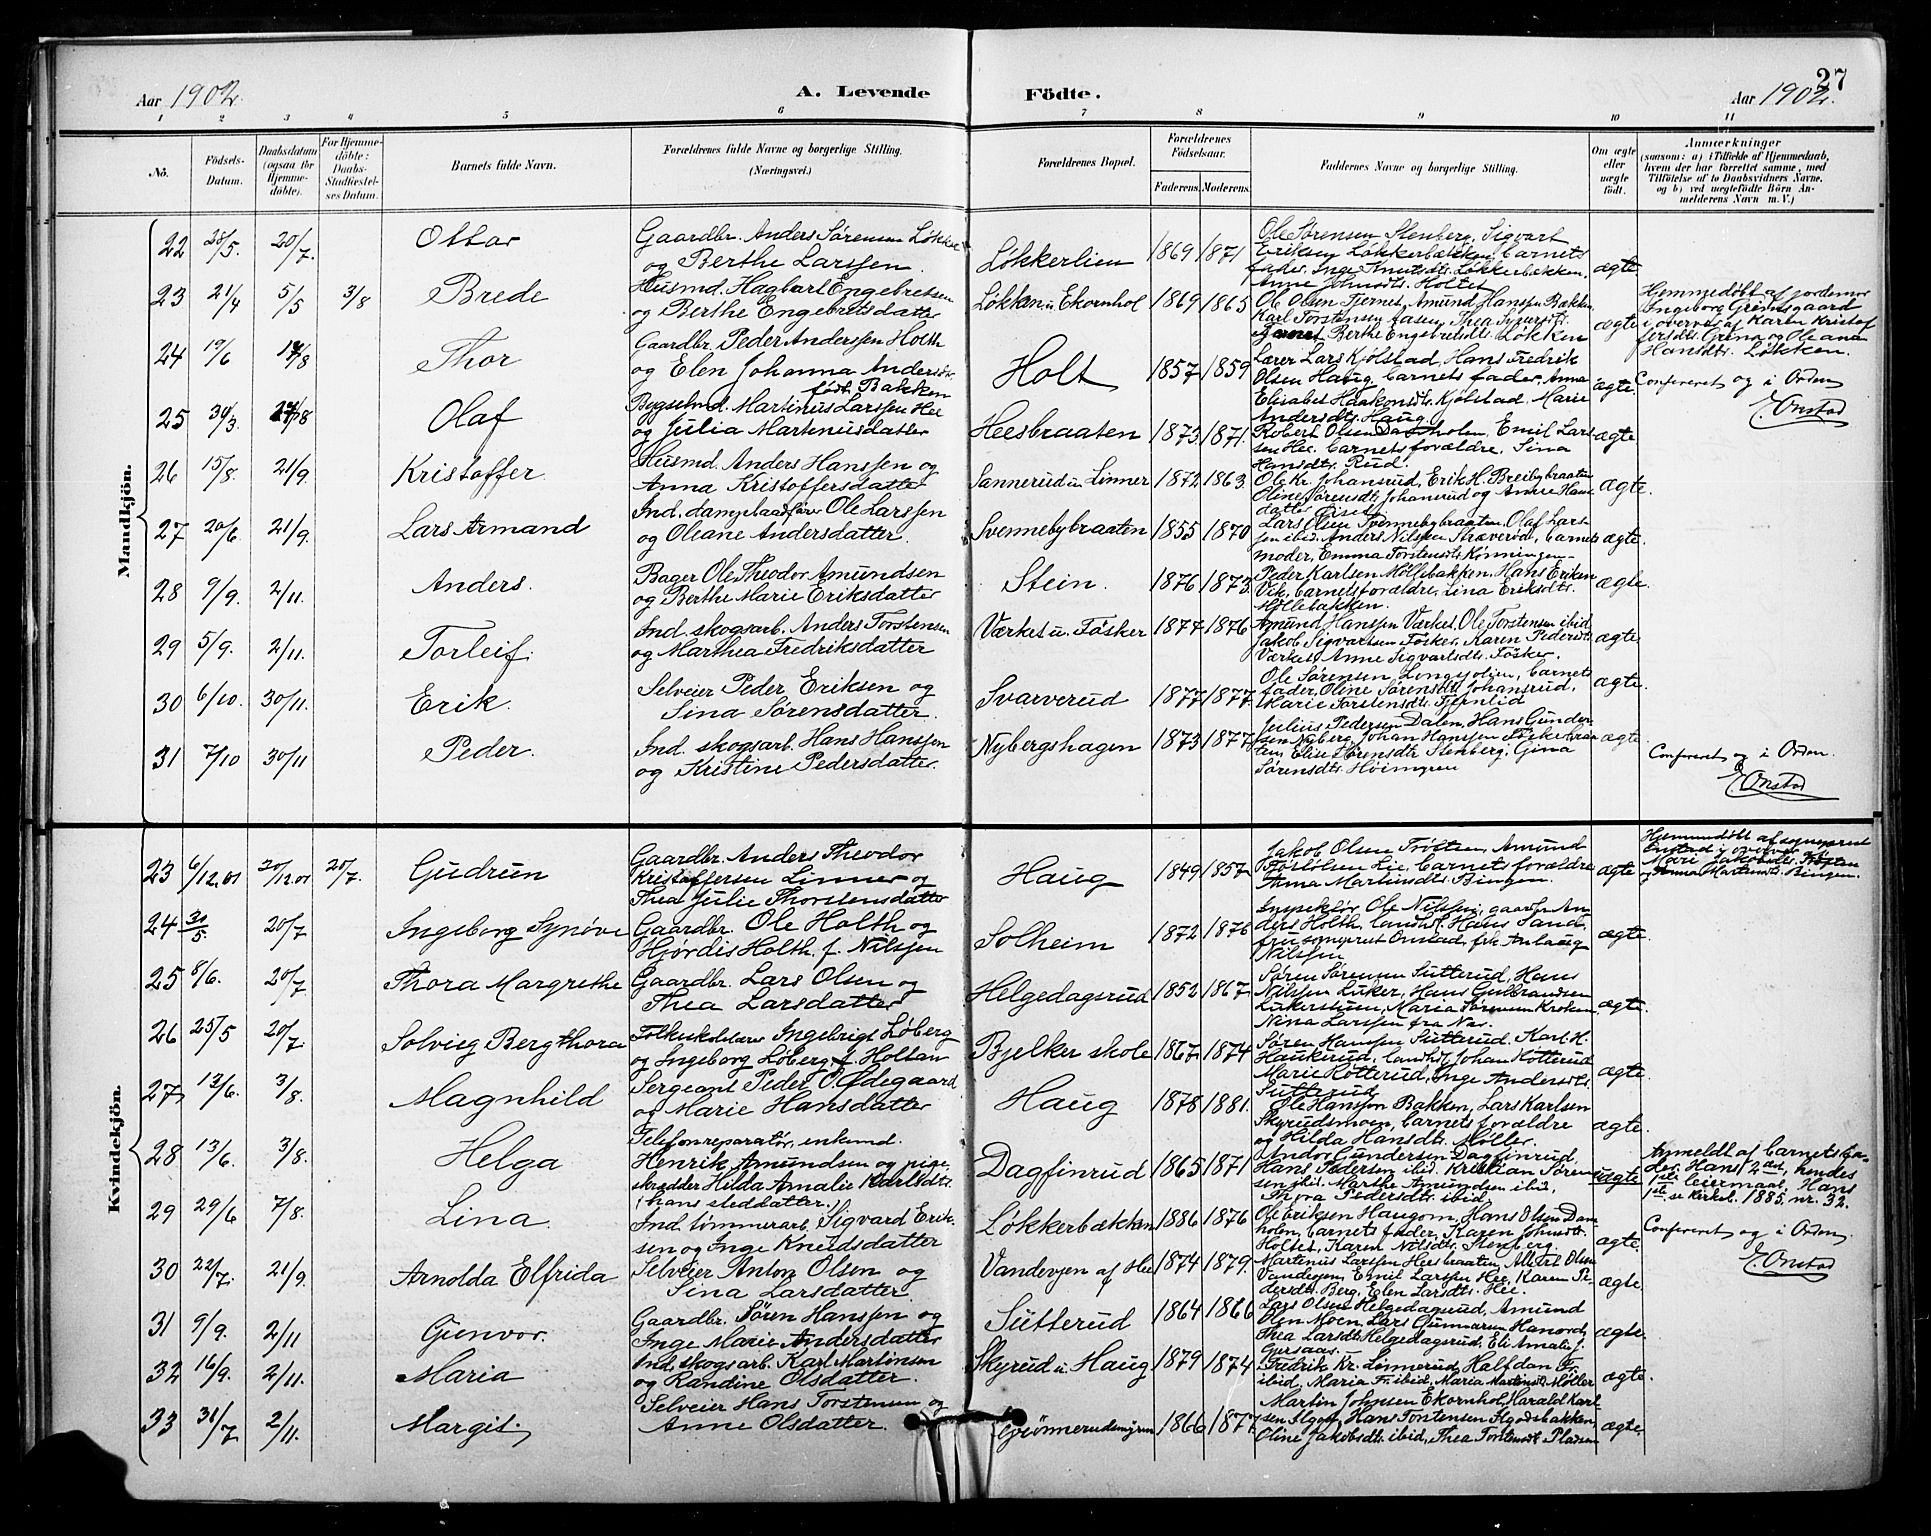 27
Aar 1902. A. Levende Födte. Aar 1902.
1 2 3 4 5 6 7 8 9 10 11
No. Födsels-Datum. Daabsdatum (ogsaa for Hjemmedöbte). For Hjemmedöbte: Daabs-Stadfæstelses Datum. Barnets fulde Navn. Forældrenes fulde Navne og borgerlige Stilling. (Næringsvei.) Forældrenes Bopæl. Forældrenes Födselsaar. Faderens. Moderens. Faddernes Navne og borgerlige Stilling. Om ægte eller uægte födt. Anmærkninger (saasom: a) i Tilfælde af Hjemmedaab, hvem der har forrettet samme, med Tilföielse af to Daabsvidners Navne, og b) ved uægtefödte Börn Anmelderens Navn m. V.)
Mandkjön.
22 28/5 20/7 Ottar Gaardbr. Anders Sørensen Løkken og Berthe Larssen. Løkkerlien 1869 1871 Ole Sørensen Stenberg, Sigvart Eriksen Løkkerbækken, barnets fader, Inge Knutsdtr. Løkkerbækken, Anne Johnsdtr. Holtet ægte.
23 21/4 5/5 3/8 Brede Husmd. Hagbart Engebretsen og Berthe Engebretsdatter Løkken u. Ekornhol 1869 1865 Ole Olsen Tjernet, Amund Hanssen Bækken, Karl Torstensen Aasen, Thea Berthe Engebretsdtr. Løkken ægte Hjemmedøbt af jordemor Ingeborg Grimsgaard i overvær af Karen Kristoffersdtr. Grena og Oleana Hansdtr. Løkken.
24 19/6 17/8 Thor Gaardbr. Peder Anderssen Holth og Elen Johanna Andersdtr. født Bakken Holt 1857 1859 Lærer Lars Kjølstad, Hans Fredrik Olsen Haug, barnets fader, Anna Elisabet Haakonsdtr. Kjølstad, Marie Andersdtr. Haug ægte. Confereret og i Orden E. Onstad
25 30/3 24/8 Olaf Bygselmd. Martinus Larssen Hee og Julia Martinusdatter Heesbraaten 1873 1871. Robert Olsen Damholen, Emil Larssen Hee, barnets forældre, Sina Hansdtr. Rud. ægte
26 15/8 21/9. Kristoffer Husmd. Anders Hanssen og Anna Kristoffersdatter Sannerud u. Linner 1872 1863. Ole Kr. Johansrud, Erik H. Breibybraaten, Oline Sørensdtr. Johansrud og Anne Hansdatter ægte.
27 20/6 21/9. Lars Armand Ind. dampbaadfører Ole Larssen og Oleane Andersdatter. Svennebybraaten 1855 1870 Lars Olsen Svennebybraaten, Olaf Larssen ibid. Anders Nilssen Stræverød, barnets moder, Emma Torstensdtr. ægte.
28 9/9. 2/11. Anders. Bager Ole Theodor Amundsen og Berthe Marie Eriksdatter Stein. 1876 1873. Peder Karlsen Møllebakken, Hans Eriksen Vik, barnets forældre, Lina Eriksdtr. Møllebakken. ægte.
29 5/9. 2/11. Torleif. Ind. skogsarb. Anders Torstensen og Marthea Fredriksdatter Værket u. Fösker 1877 1876 Amund Hanssen Værket, Ole Torstensen ibid Jakob Sigvartsen Fösker, Karen Pedersdtr. Værket, Anne Sigvartsdtr. Fösker. ægte
30 6/10. 30/11. Erik. Selveier Peder Eriksen og Sina Sørensdatter. Svarverud 1877 1877 Ole Sørensen, barnets fader, Oline Sørensdtr. Johansrud, Marie Torstensdtr. Tjernlid ægte.
31 7/10 30/11 Peder. Ind. skogsarb. Hans Hanssen og Kristine Pedersdatter. Nybergshagen 1873 1877 Julius Pedersen Dalen, Hans Gundersen Nyberg, Johan Hanssen, Elise Sørensdtr. Stenberg, Gina Sørensdtr. Høimyren ægte. Confereret og i Orden. E. Onstad
Kvindekjön.
23 6/12.01 20/12.01 20/7. Gudrun Gaardbr. Anders Theodor Kristoffersen Linner og Thea Julie Thorstensdatter Haug 1849 1857 Jakob Olsen Trøtten, Amund Lie, barnets forældre Anna Martinsdtr. Bingen. ægte Hjemmedøbt af sogneprest Onstad i overvær af Mari Jakobsdtr. Trøtten og Anna Martinsdtr. Bingen.
24 30/5. 20/7 Ingeborg Synøve Gaardbr. Ole Holth og Hjørdis Holth, f. Nilssen Solheim 1872 1876 Inspektør Ole Nilssen, gaardbr. Anders Holth, landh. Hans Sand, fru sogneprest Onstad, frk. Aslaug Nilssen ægte.
25 8/6. 20/7 Thora Margrethe Gaardbr. Lars Olsen og Thea Larsdatter Helgedagsrud 1852 1867. Søren Sørensen Sutterud, Hans Nilssen Luker, Hans Gulbrandsen Lukerstuen, Maria Sørensen Nina Larssen fra Næs. ægte.
26 25/5 20/7. Solvieg Bergthora Folkeskolelærer Ingebrigt Løberg og Ingeborg Løberg f. Holtan Bjelker skole 1867. 1874 Søren Hanssen Sutterud, Karl H. Haukerud, landh. Johan Rotterud Marie Rotterud, Inge Andersdtr. Sutterud ægte.
27, 13/6. 3/8. Magnhild Sergeant Peder O. Ødegaard og Marie Hansdatter Haug 1878 1881. Ole Hanssen Bakken, Lars Karlsen Skyrudsmoen, barnets forældre og Hilda Hansdtr. Møller. ægte.
28 13/6. 3/8. Helga Telefonreparatør, enkemd. Henrik Amundsen og pige, Hilda Amalie Karlsdtr. (hans steddatter.) Dagfinrud 1865 1871 Andor Gundersen Dagfinrud, Hans Pedersen ibid. Kristian Sørensen ibid. Marthe Amundsen ibid, Thora Pedersdtr. ibid. uægte Anmeldt af barnets fader. Hans 2det, hendes 1ste leiermaal. Hans 1ste, se kirkeb. 1885, nr. 32.
29 29/6 7/8. Lina. Ind. tømmerarb. Sigvard Eriksen og Inge Knudsdatter Løkkerbækken 1886 1876 Ole Eriksen Haugom, Hans Olsen Damholen, barnets fader, Karen Johnsdtr. Holtet, Karen Nilsdtr. Stenberg. ægte Confereret og i Orden. E. Onstad
30 22/7. 21/9. Arnolda Elfrida Selveier Anton Olsen og Sina Larsdatter. Vandevjen af Hee 1874 1879. Martinus Larssen Heesbraaten, Alfred Olsen Vandevjen, Emil Larssen Hee, Karen Pedersdtr. Berg, Elen Larsdtr. Hee. ægte.
31 9/9. 2/11 Gunvor. Gaardbr. Søren Hanssen og Inge Marie Andersdatter Sutterud 1864 1866 Lars Olsen Helgedagsrud, Amund Olsen Moen, Lars Gunnarsen Hanord, Thea Larsdtr. Helgedagsrud, Eli Amalie J. ægte.
32 16/9. 2/11. Maria Ind. skogsarb. Karl Martinsen og Randine Olsdatter. Skyrud u. Haug 1879 1874 Fredrik Kr. Linnerud, Halfdan Fr. ibid, Maria Fr. ibid, Maria Martinsdtr. Møller ægte.
33 31/7 2/11. Margit, Selveier Hans Torstensen og Anne Olsdatter. Grönnerudsmyren 1866 1877. Martin Johnsen Ekornhol, Harald Karlsen, Hans Torstensen Oline Jakobsdtr. ibid, Thea Torstensdtr. Pladsen ægte.